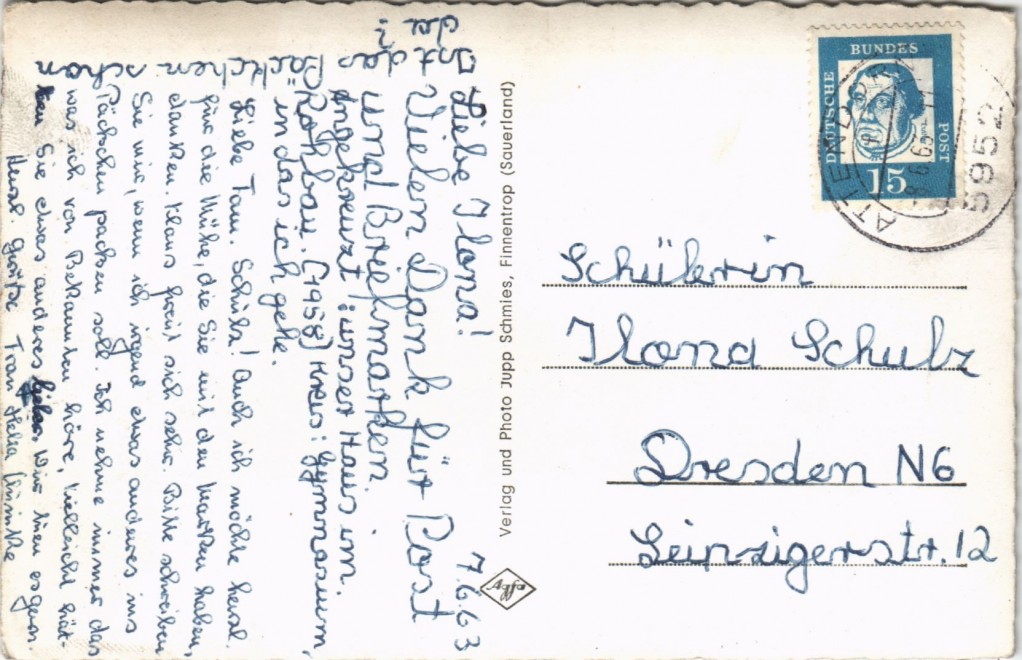 7.6.63
Liebe Ilona!
Vielen Dank für Post
und Briefmarken
Angekreuzt: unser Haus im.
Rohbau. (1958) Kreis: Gymnasium,
in das ich gehe.
Ist das Päckchen schon da?
Liebe Fam. Schulz! Auch ich möchte herzl.
für die Mühe, die Sie mit den Marken haben,
danken. Klaus freut sich sehr. Bitte schreiben
Sie mir, wenn ich irgend etwas anderes ins
Päckchen packen soll. Ich nehme immer das
was ich von Bekannten höre, vielleicht hät-
ten Sie etwas anderes lieber. Wir tuen es gern.
Herzl. Grüße Frau
Verlag und Photo Jupp Schmies, Finnentrop (Sauerland)
Agfa
DEUTSCHE BUNDESPOST
15
ATTENDORN
5952
Schülerin
Ilona Schulz
Dresden N6
Leipzigerstr. 12